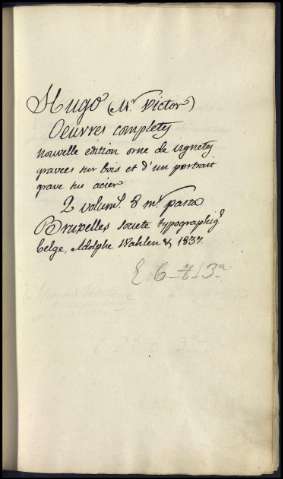 Hugo (Mr Victor)
Oeuvres completes
nouvelle edition orne de vignetes
gravees sur bois et d'un portrait
grave sur acier
2 volum.
Bruxelles societe typographiq.
belge, Adolphe Wahlen & 1837.
E 6-7